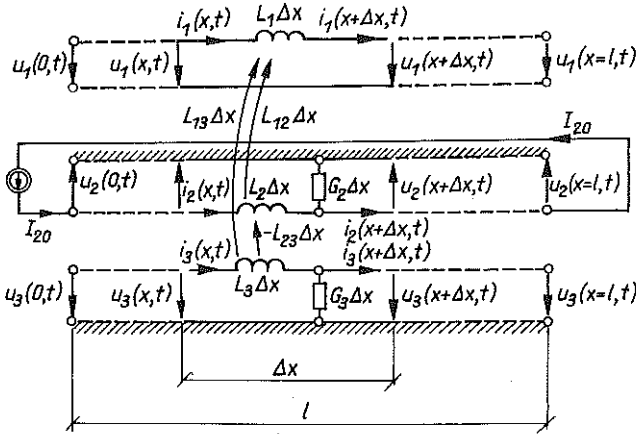 i₁(x,t) L₁Δx i₁(x+Δx,t)
u₁(0,t) u₁(x,t) u₁(x+Δx,t) u₁(x=l,t)
L₁₃Δx L₁₂Δx
I₂₀
u₂(0,t) i₂(x,t) L₂Δx G₂Δx u₂(x+Δx,t) u₂(x=l,t)
I₂₀
-L₂₃Δx i₂(x+Δx,t)
i₃(x,t) i₃(x+Δx,t)
u₃(0,t) u₃(x,t) L₃Δx G₃Δx u₃(x+Δx,t) u₃(x=l,t)
Δx
l